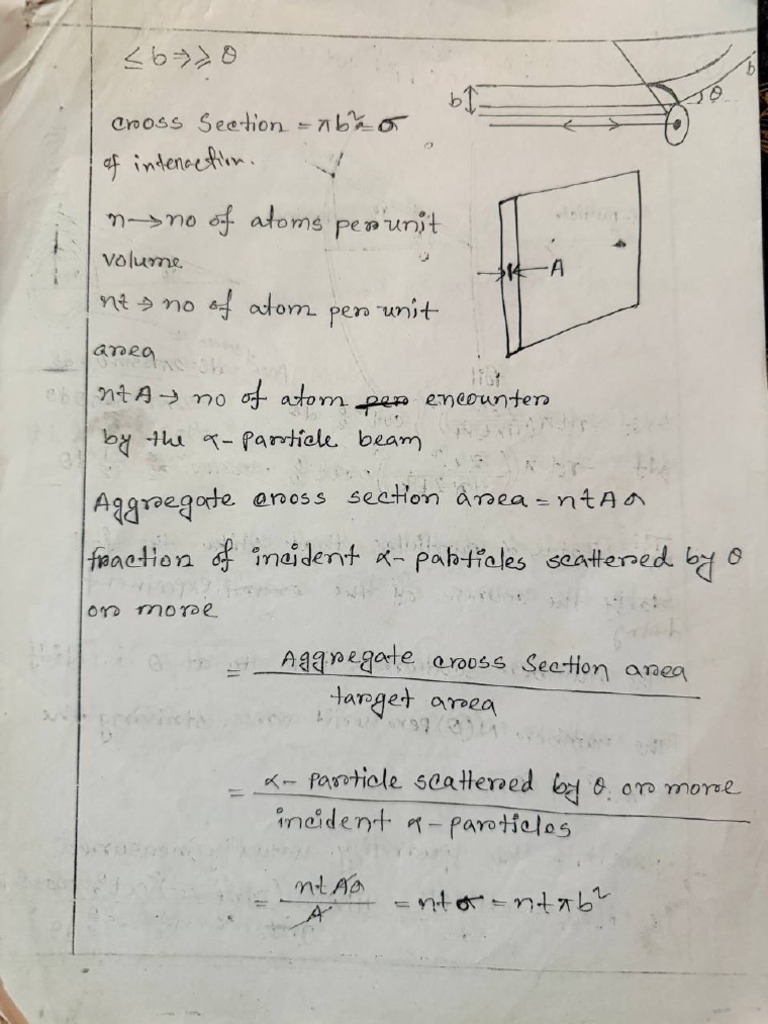 ≤ b ⇒ ≥ θ
b
b
θ
cross Section = πb² = σ
of interaction.
n → no of atoms per unit
volume
A
nt → no of atom per unit
area
ntA → no of atom per encounter
by the α- particle beam
Aggregate cross section area = ntAσ
fraction of incident α- particles scattered by θ
or more
= Aggregate cross section area
target area
= α- particle scattered by θ or more
incident α- particles
= ntAσ / A = ntσ = ntπb²